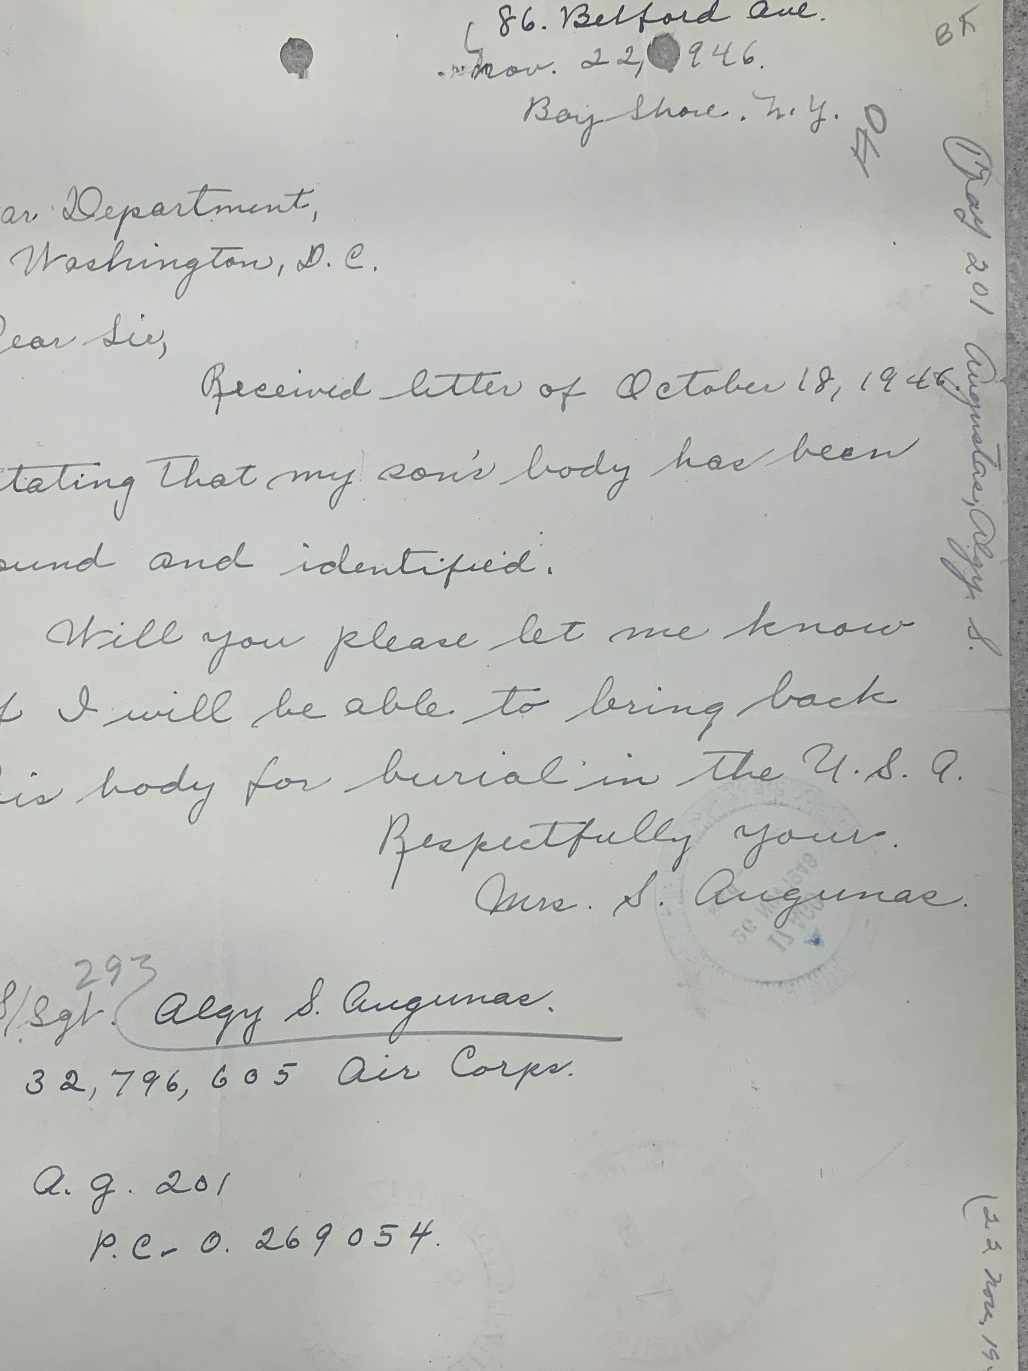 86. Belford Ave.
Nov. 22, 1946.
Bay Shore. N.Y.
ar Department,
Washington, D.C.
ear Sir,
Received letter of October 18, 1946
tating that my son's body has been
ound and identified.
Will you please let me know
f I will be able to bring back
is body for burial in the U.S.A.
Respectfully your.
Mrs. S. Augunas.
293
S/Sgt. Algy S. Augunas.
32,796,605 Air Corps.
A.G. 201
P.C-O. 269054.
201 Augustas, Algy S.
(22 Nov. 19